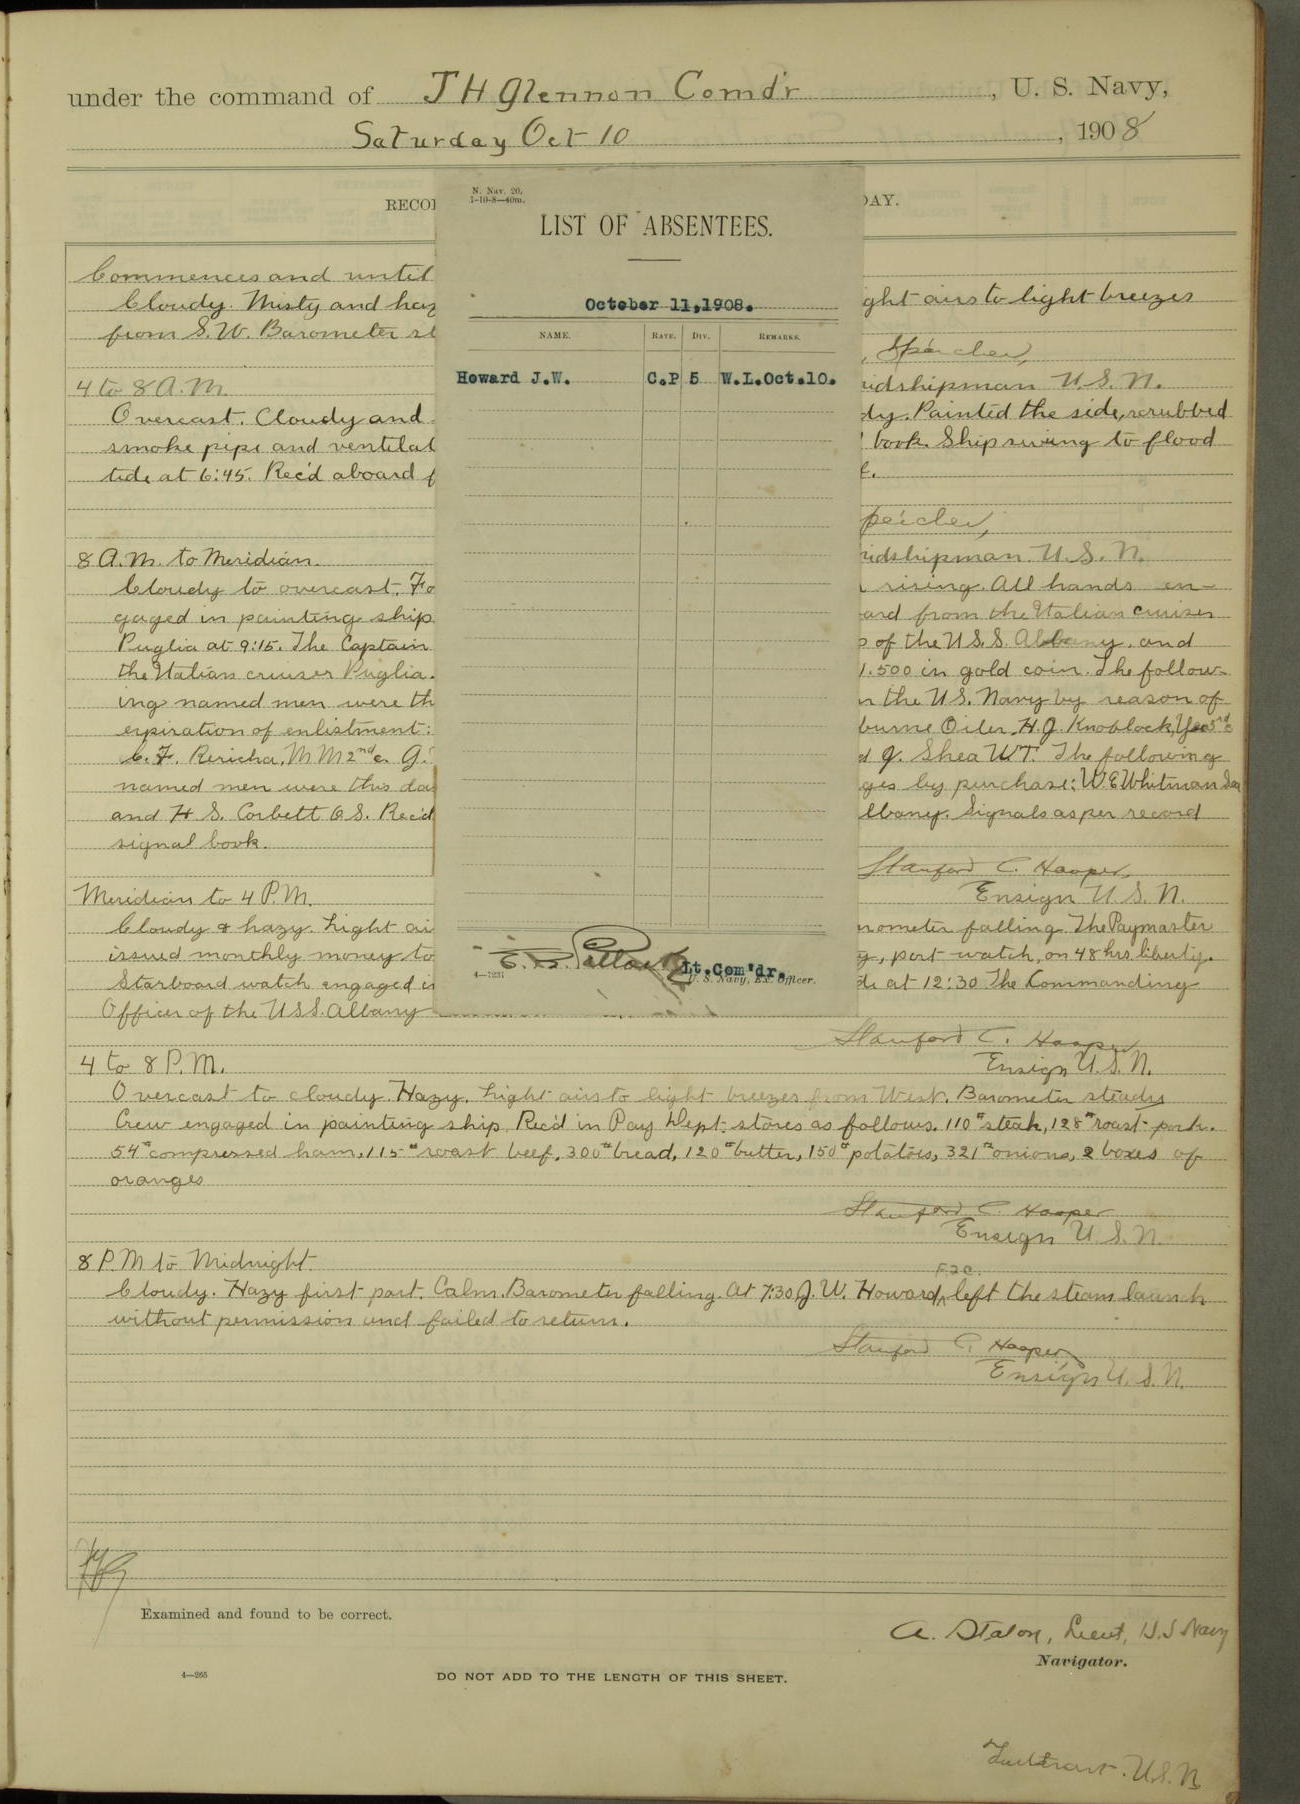 under the command of J H Glennon Comd'r, U. S. Navy,
Saturday Oct 10, 1908
RECO
DAY.
N. Nav. 20.
1-10-8—40m.
LIST OF ABSENTEES.
October 11,1908.
NAME. RATE. DIV. REMARKS.
Howard J.W. C.P 5 W.L.Oct.10.
Lt.Com'dr.
4—7231 U. S. Navy, Ex. Officer.
Commences and until
Cloudy. Misty and haz ght airs to light breezes
from S.W. Barometer st
Speicher,
4 to 8 A.M. idshipman U.S.N.
Overcast. Cloudy and dy. Painted the side, scrubbed
smoke pipe and ventilat book. Ship swung to flood
tide at 6:45. Rec'd aboard f
peicher,
8 A.M. to Meridian. idshipman U.S.N.
Cloudy to overcast. Fo rising. All hands en-
gaged in painting ship ard from the Italian cruiser
Puglia at 9:15. The Captain of the U.S.S. Albany, and
the Italian cruiser Puglia. 1.500 in gold coin. The follow-
ing named men were th n the U.S. Navy by reason of
expiration of enlistment: burne Oiler, H.J. Knoblock, Yeo 3rd c
C.F. Rericha, M M 2nd c. G. d J. Shea W T. The following
named men were this da ges by purchase: W E Whitman Sea
and H S. Corbett O.S. Rec'd lbany. Signals as per record
signal book.
Stanford C. Hooper,
Meridian to 4 P.M. Ensign U.S.N.
Cloudy & hazy. Light ai rometer falling. The Paymaster
issued monthly money to g, port watch, on 48 hrs. liberty.
Starboard watch engaged i de at 12:30. The Commanding
Officer of the U.S.S. Albany
Stanford C. Hooper
4 to 8 P.M. Ensign U.S.N.
Overcast to cloudy. Hazy. Light airs to light breezes from West. Barometer steady
Crew engaged in painting ship. Rec'd in Pay Dept. stores as follows. 110# steak, 128# roast pork.
54# compressed ham, 115# roast beef, 300# bread, 120# butter, 150# potatoes, 321# onions, 2 boxes of
oranges
Stanford C. Hooper
Ensign U.S.N.
8 P.M to Midnight.
Cloudy. Hazy first part. Calm. Barometer falling. At 7:30 J. W. Howard, F2C. left the steam launch
without permission and failed to return.
Stanford C. Hooper,
Ensign U.S.N.
Examined and found to be correct.
A. Staton, Lieut, U.S Navy
Navigator.
4—265
DO NOT ADD TO THE LENGTH OF THIS SHEET.
U.S.N.